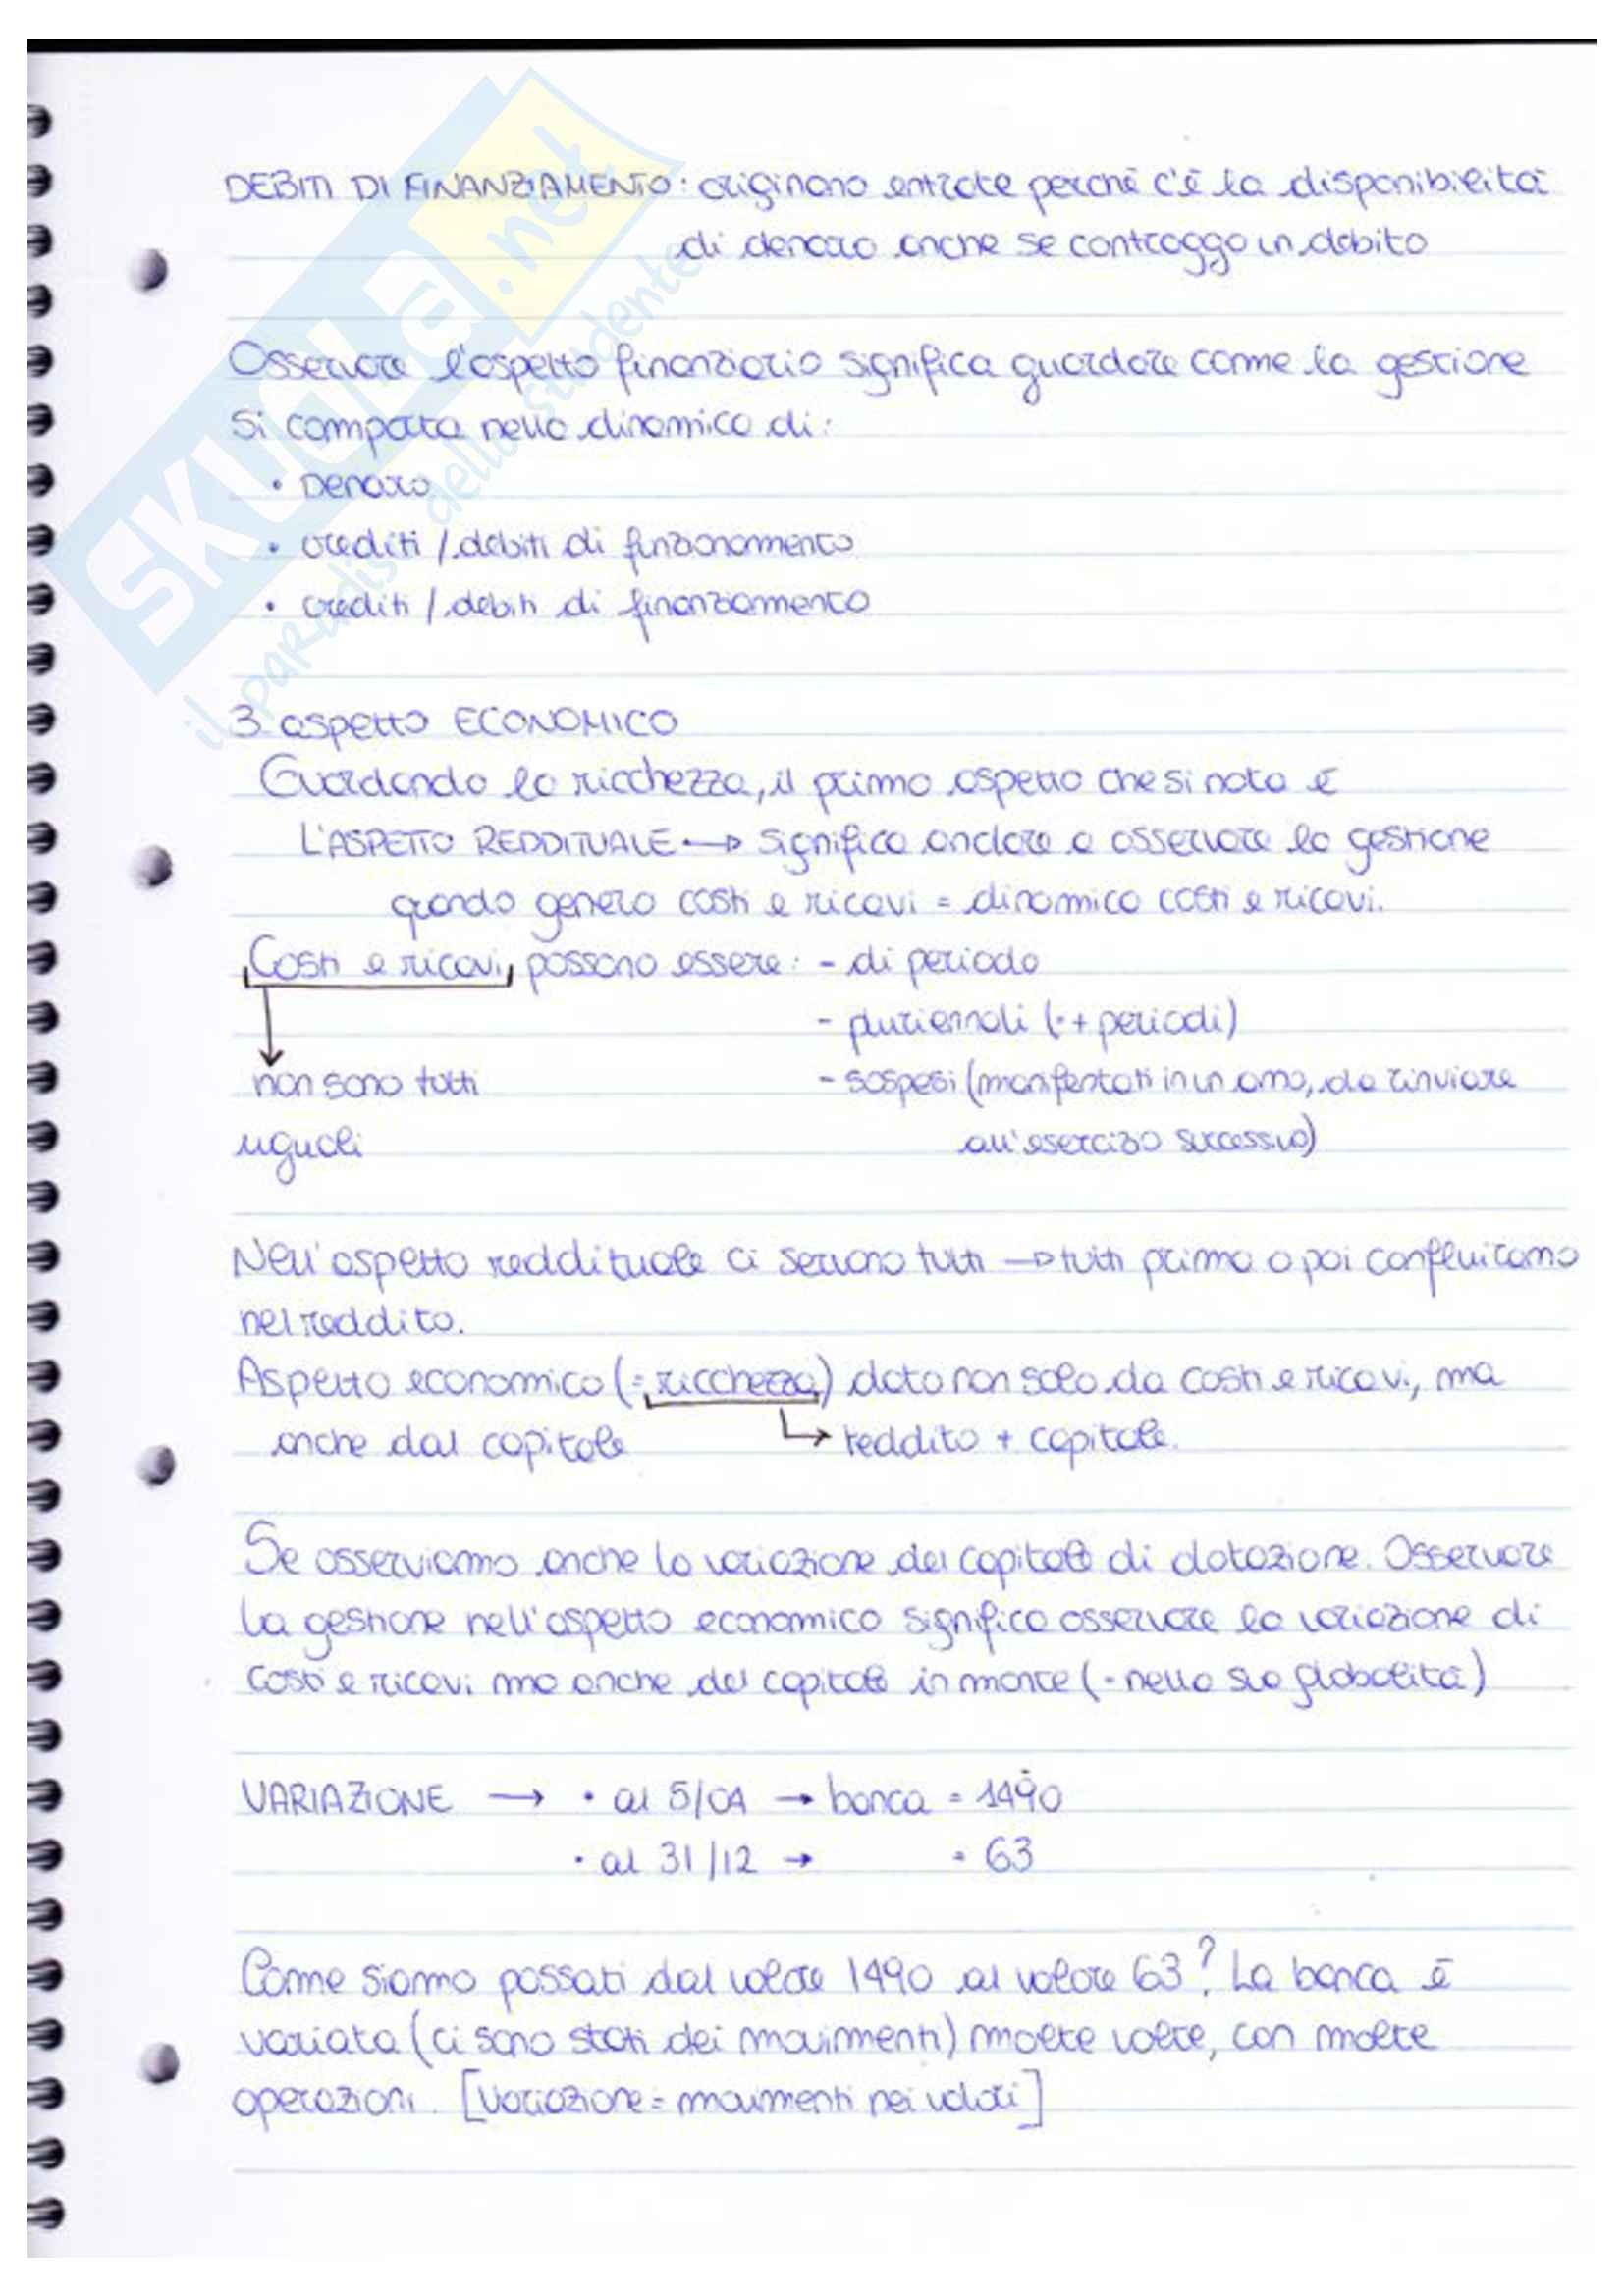 DEBITI DI FINANZIAMENTO: originano entrate perché c'è la disponibilità
di denaro anche se contraggo un debito
Osservare l'aspetto finanziario significa guardare come la gestione
si comporta nella dinamica di:
• Denaro
• crediti / debiti di funzionamento
• crediti / debiti di finanziamento
3 aspetto ECONOMICO
Guardando la ricchezza, il primo aspetto che si nota è
L'ASPETTO REDDITUALE → significa andare a osservare la gestione
quando genera costi e ricavi = dinamica costi e ricavi.
Costi e ricavi, possono essere: - di periodo
- pluriennali (= + periodi)
non sono tutti - sospesi (manifestati in un anno, da rinviare
uguali all'esercizio successivo)
Nell'aspetto reddituale ci servono tutti → tutti prima o poi confluiranno
nel reddito.
Aspetto economico (= ricchezza) dato non solo da costi e ricavi, ma
anche dal capitale → reddito + capitale.
Se osserviamo anche la variazione del capitale di dotazione. Osservare
la gestione nell'aspetto economico significa osservare la variazione di
costi e ricavi ma anche del capitale in monte (= nella sua globalità)
VARIAZIONE → • al 5/01 → banca = 1490
• al 31/12 → = 63
Come siamo passati dal valore 1490 al valore 63? La banca è
variata (ci sono stati dei movimenti) molte volte, con molte
operazioni. [Variazione = movimenti nei valori]
SKUOLA.net
il paradiso dello studente